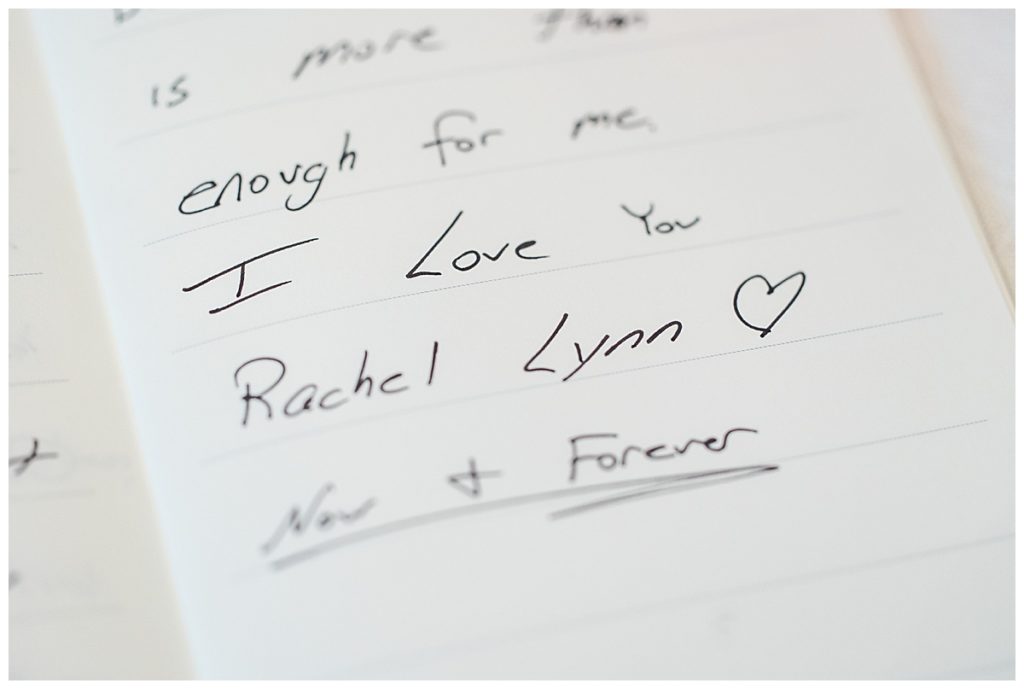 is more than
enough for me.
I Love You
Rachel Lynn ♡
Now + Forever